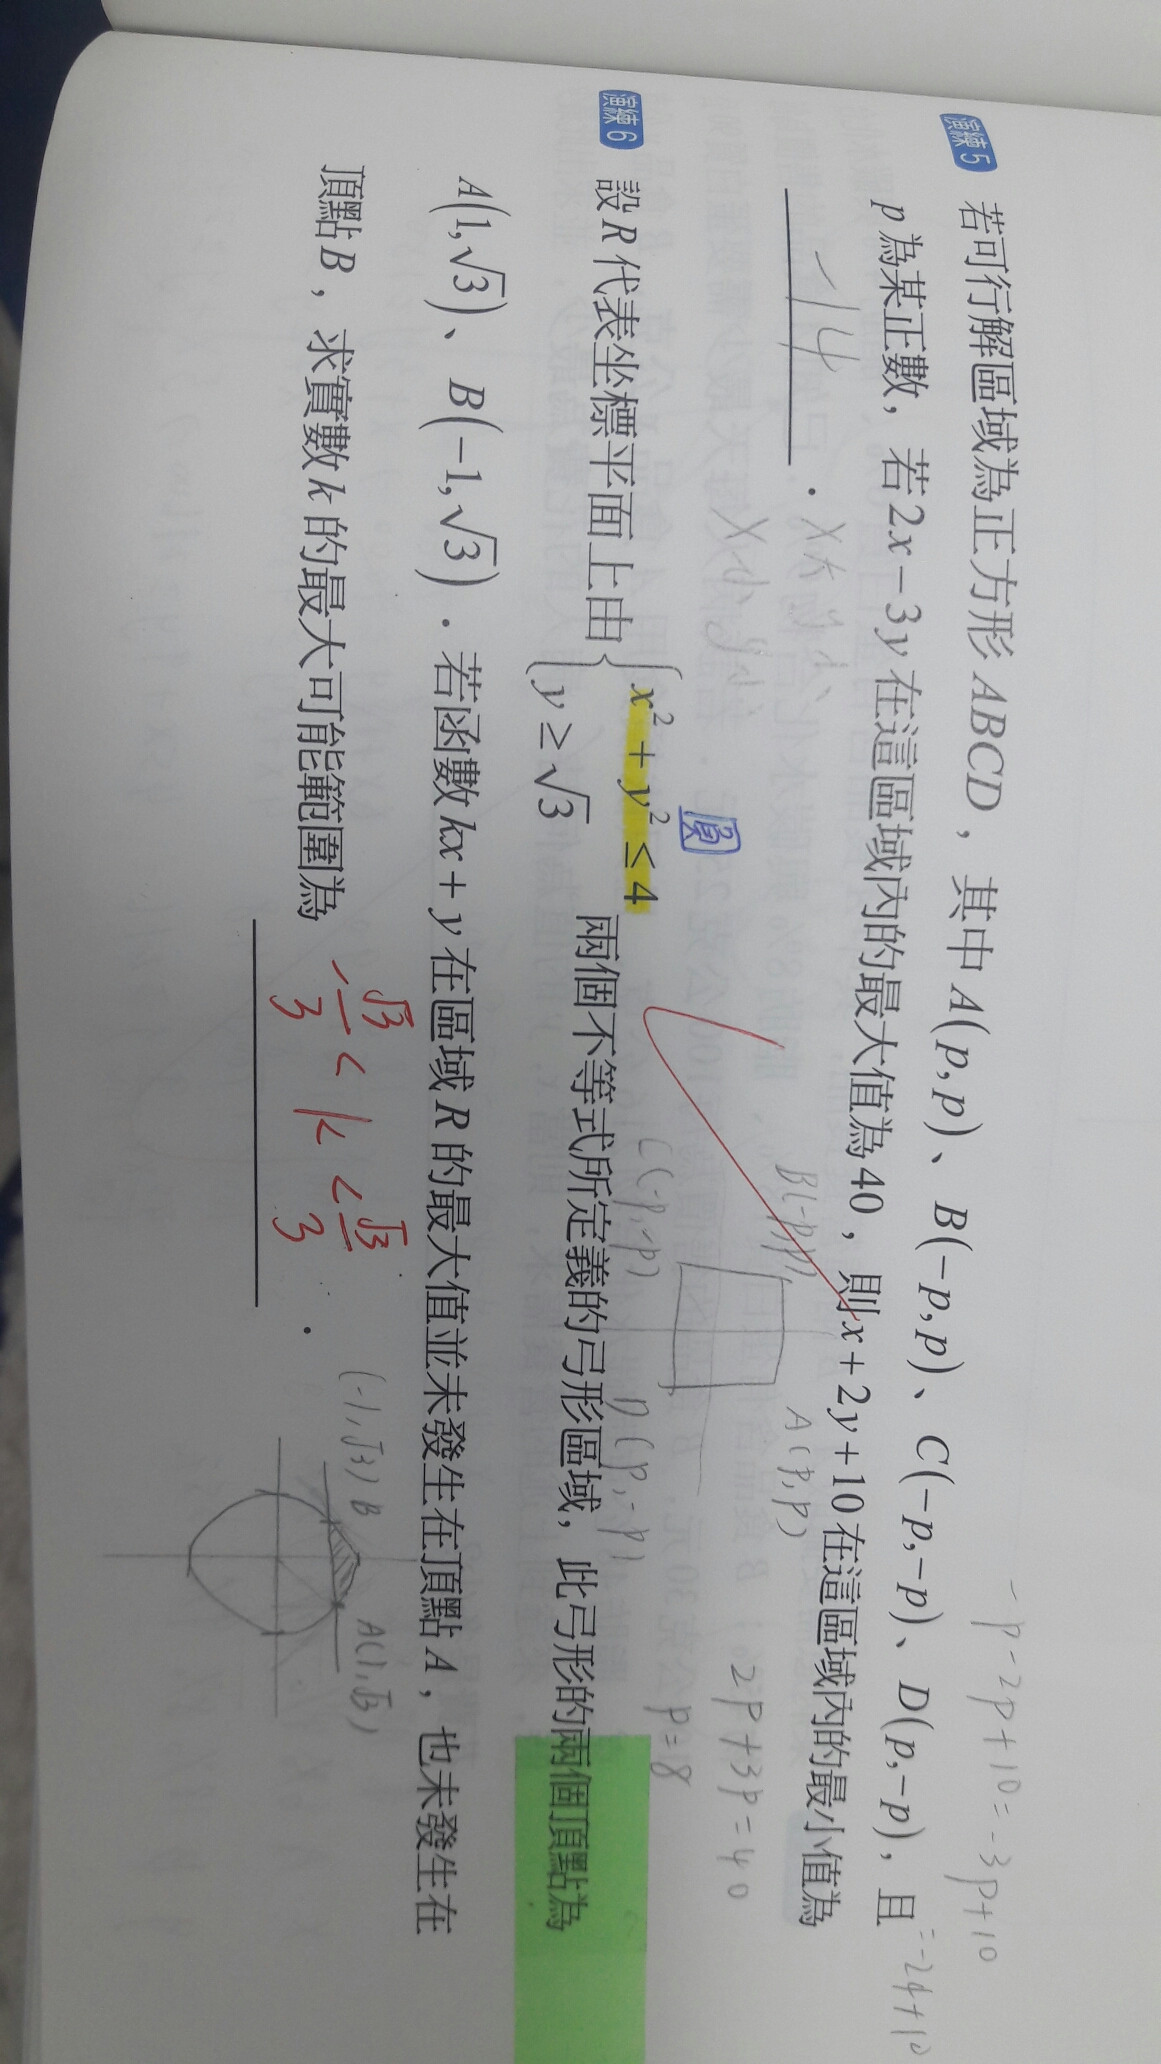 演練5 若可行解區域為正方形 ABCD，其中 A(p,p)、B(-p,p)、C(-p,-p)、D(p,-p)，且
p 為某正數，若 2x-3y 在這區域內的最大值為 40，則 x+2y+10 在這區域內的最小值為
-14 .
-p-2p+10=-3p+10
=-24+10
B(-p,p)
A(p,p)
C(-p,-p)
D(p,-p)
2p+3p=40
p=8
圓
演練6 設 R 代表坐標平面上由 { x²+y²≤4
y≥√3 兩個不等式所定義的弓形區域，此弓形的兩個頂點為
A(1,√3)、B(-1,√3)．若函數 kx+y 在區域 R 的最大值並未發生在頂點 A，也未發生在
頂點 B，求實數 k 的最大可能範圍為 -√3/3 < k < √3/3 .
(-1,√3) B
A(1,√3)